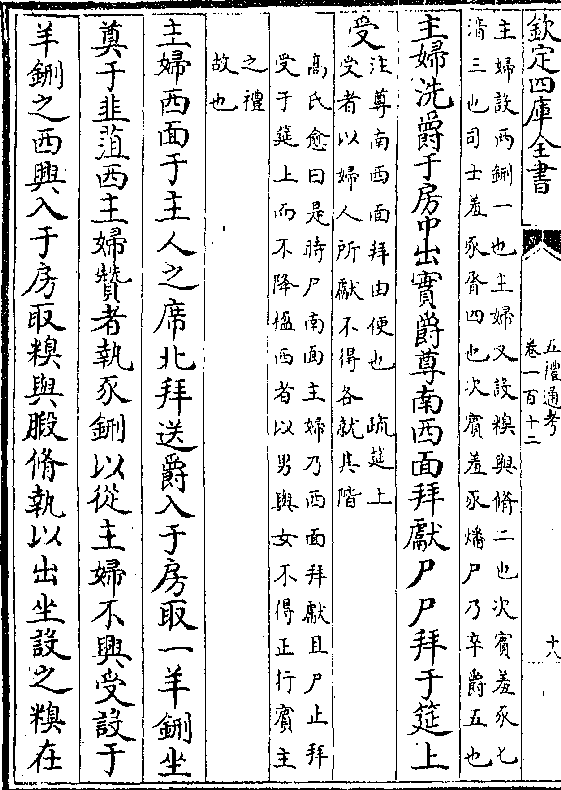 欽定四庫全書
五禮通考
卷一百十二
十八
主婦設兩鉶一也主婦又設糗與脩二也次賓羞豕匕
湆三也司士羞豕脀四也次賓羞豕燔尸乃卒爵五也
主婦洗爵于房中出實爵尊南西面拜獻尸尸拜于筵上
受
注尊南西面拜由便也 疏筵上
受者以婦人所獻不得各就其階
高氏愈曰是時尸南面主婦乃西面拜獻且尸止拜
受于筵上而不降楹西者以男與女不得正行賓主
之禮
故也
主婦西面于主人之席北拜送爵入于房取一羊鉶坐
奠于韭菹西主婦贊者執豕鉶以從主婦不興受設于
羊鉶之西興入于房取糗與腶脩執以出坐設之糗在